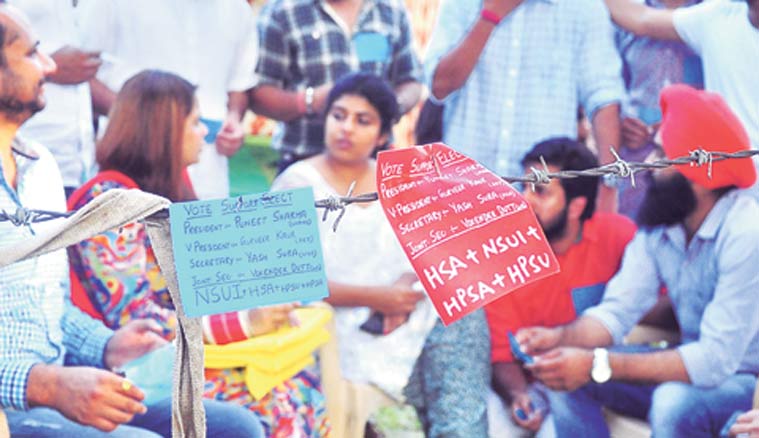 VOTE SUPPORT ELECT
PRESIDENT - PUNEET SHARMA
V PRESIDENT - GURVEER KAUR
SECRETARY - YASH SURA
JOINT SEC - VORENDER DUTTON
NSUI + HSA + HPSU + HPSA
VOTE SUPPORT ELECT
PRESIDENT - PUNEET SHARMA
V PRESIDENT - GURVEER KAUR
SECRETARY - YASH SURA
JOINT SEC - VORENDER DUTTON
HSA + NSUI +
HPSA + HPSU